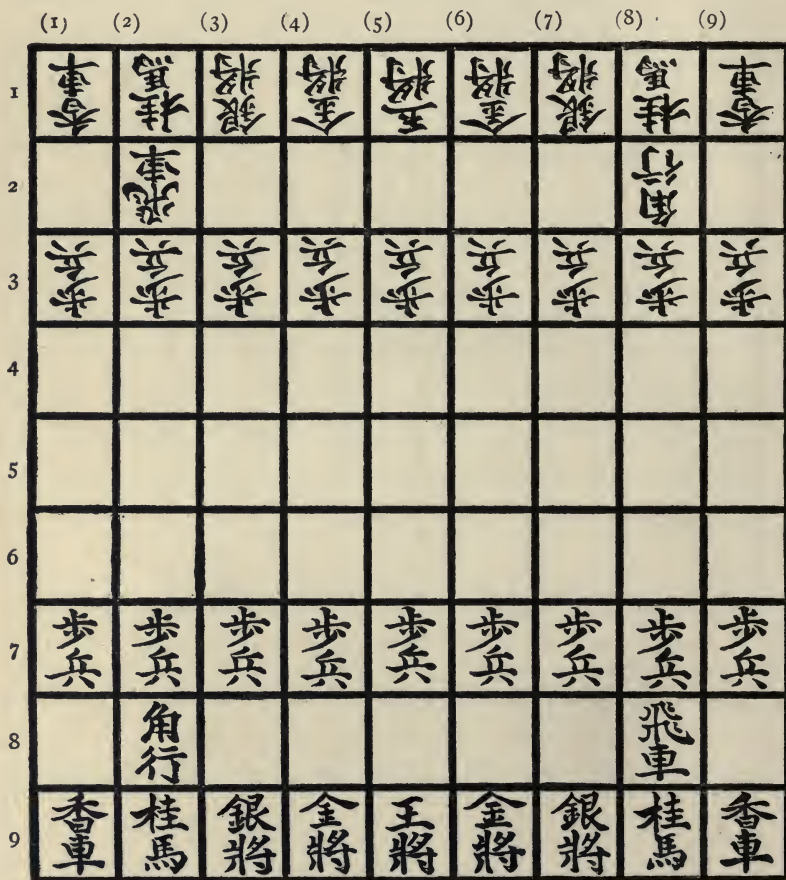 (1) (2) (3) (4) (5) (6) (7) (8) (9)
1 香車 桂馬 銀將 金將 玉將 金將 銀將 桂馬 香車
2 飛車 角行
3 歩兵 歩兵 歩兵 歩兵 歩兵 歩兵 歩兵 歩兵 歩兵
4
5
6
7 歩兵 歩兵 歩兵 歩兵 歩兵 歩兵 歩兵 歩兵 歩兵
8 角行 飛車
9 香車 桂馬 銀將 金將 王將 金將 銀將 桂馬 香車